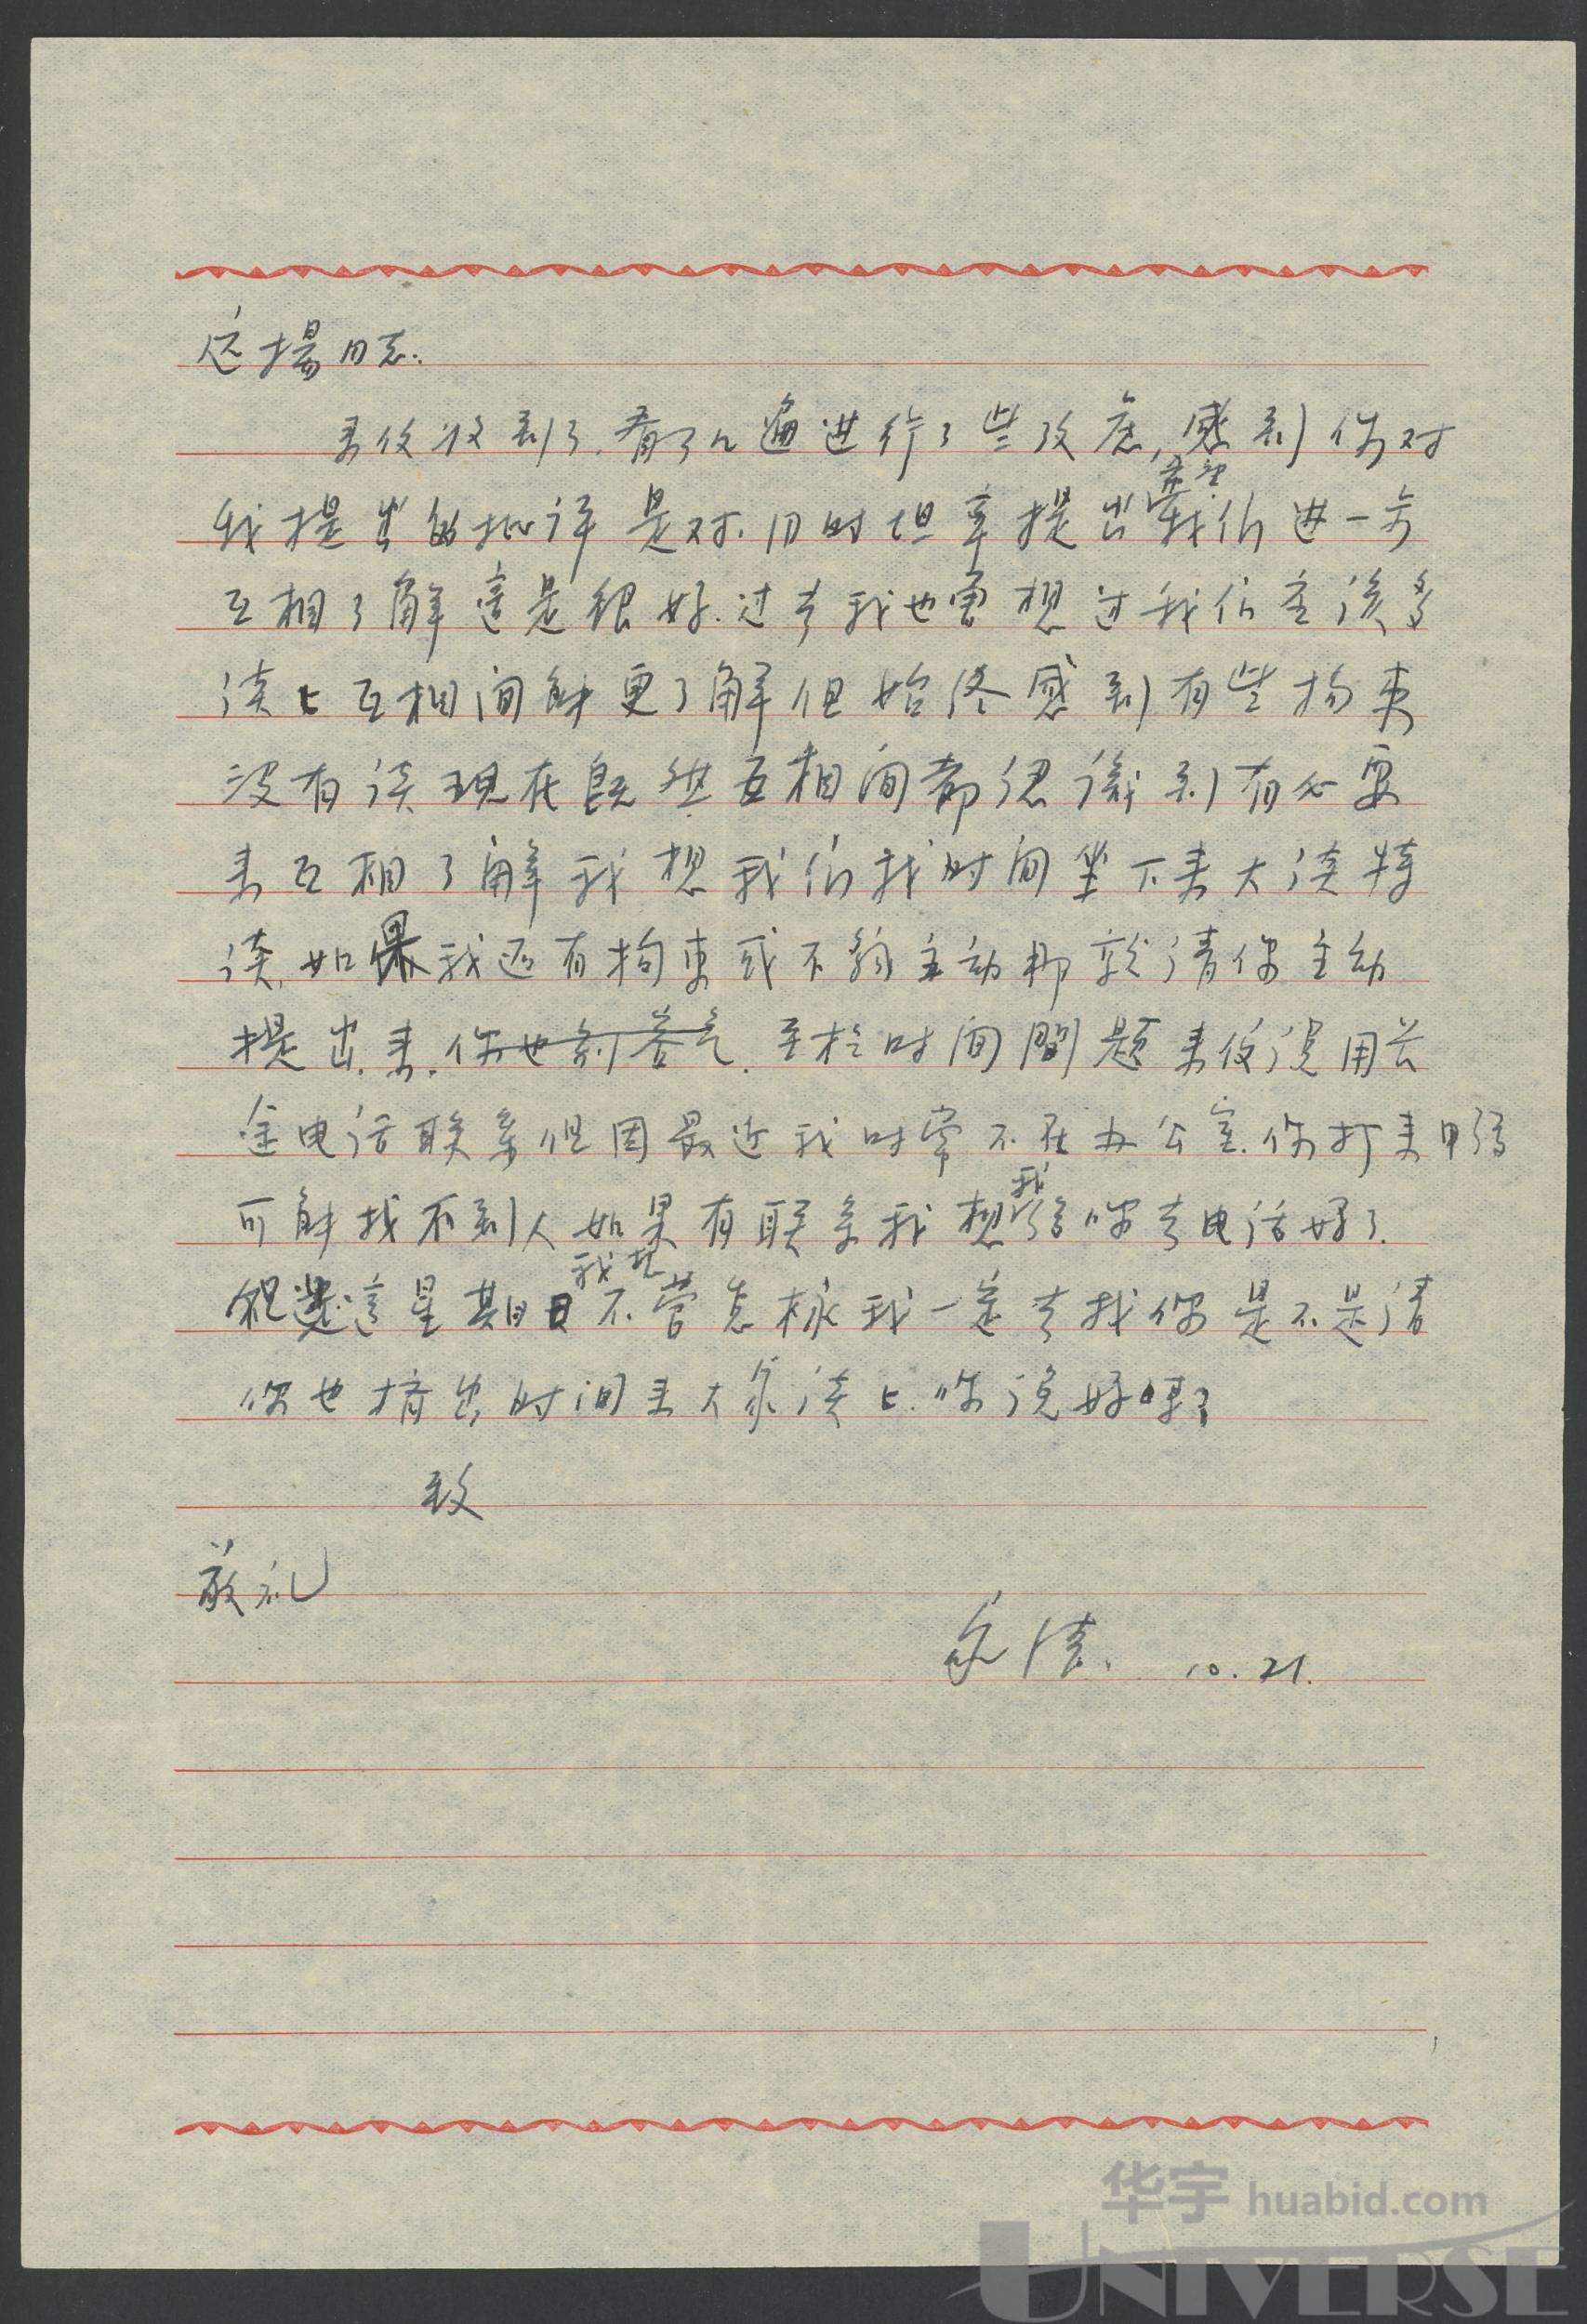 远揚同志.
来信收到了.看了几遍进行了些考虑,感到你对
我提出的批评是对.同时坦率提出希望我们进一步
互相了解这是很好.过去我也曾想过我们应该多
谈谈互相间能更了解但始终感到有些拘束
没有谈现在既然互相间都認識到有必要
来互相了解我想我们找时间坐下来大谈特
谈.如果我还有拘束或不够主动那就请你主动
提出来.至於时间問题来信说用
电话联系但因最近我时常不在办公室.你打来电话
可能找不到人如果有联系我想我给你去电话好了.
這星期日我想不管怎樣我一定去找你是不是请
你也擠出时间来大家谈谈.你说好嗎?
致
敬礼
10.21.
华宇 huabid.com
UNIVERSE